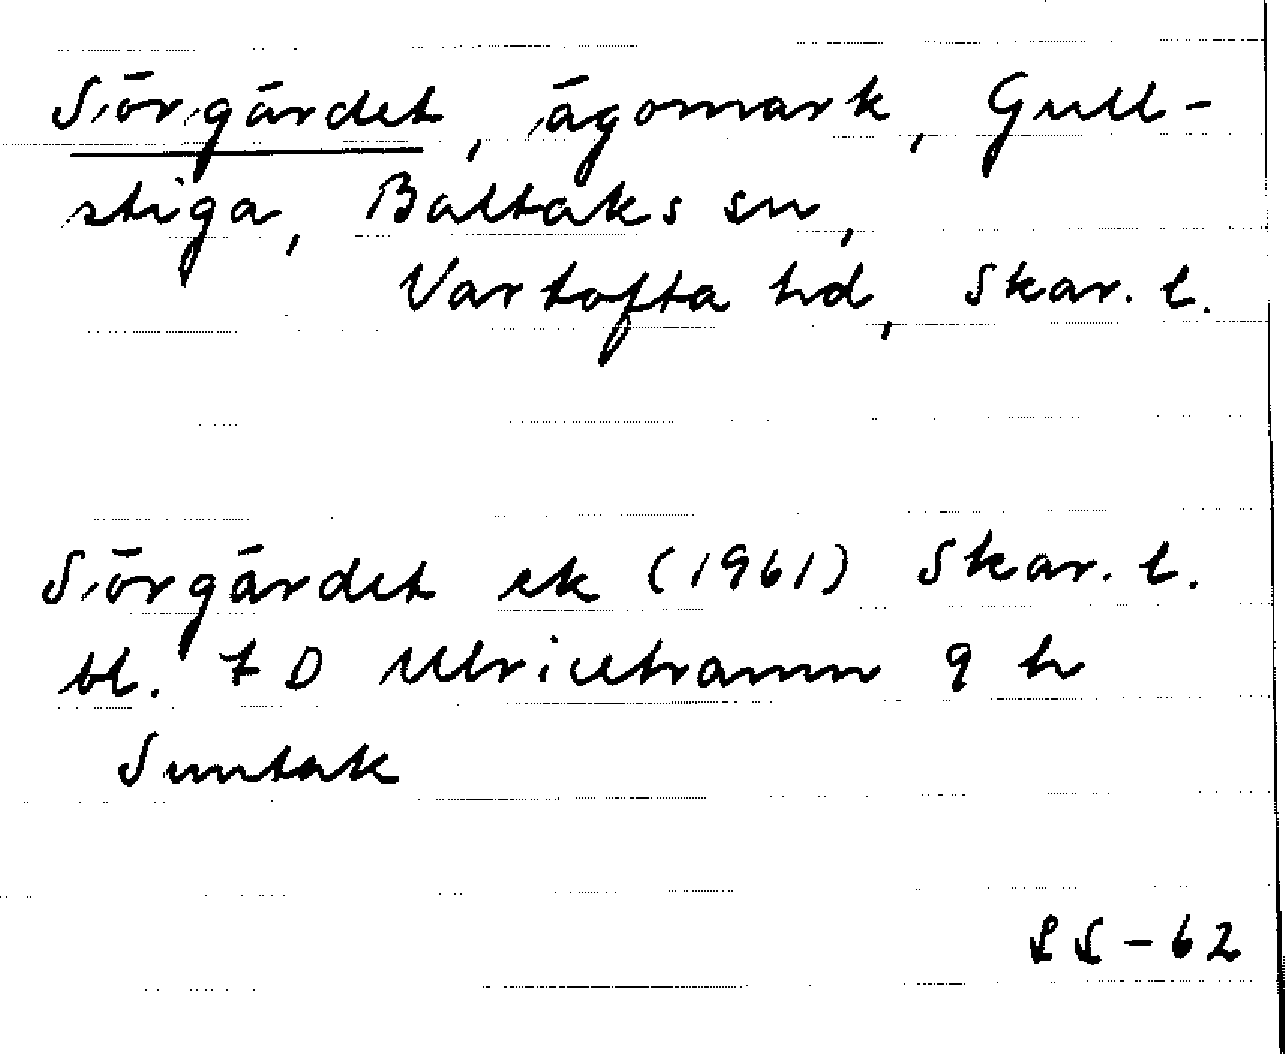 Sörgärdet, ägomark, Gull-
stiga, Baltaks sn,
Vartofta hd, Skar. l.
Sörgärdet ek (1961) Skar. l.
bl. 7 D Ulricehamn 9 h
Suntak
SS-62